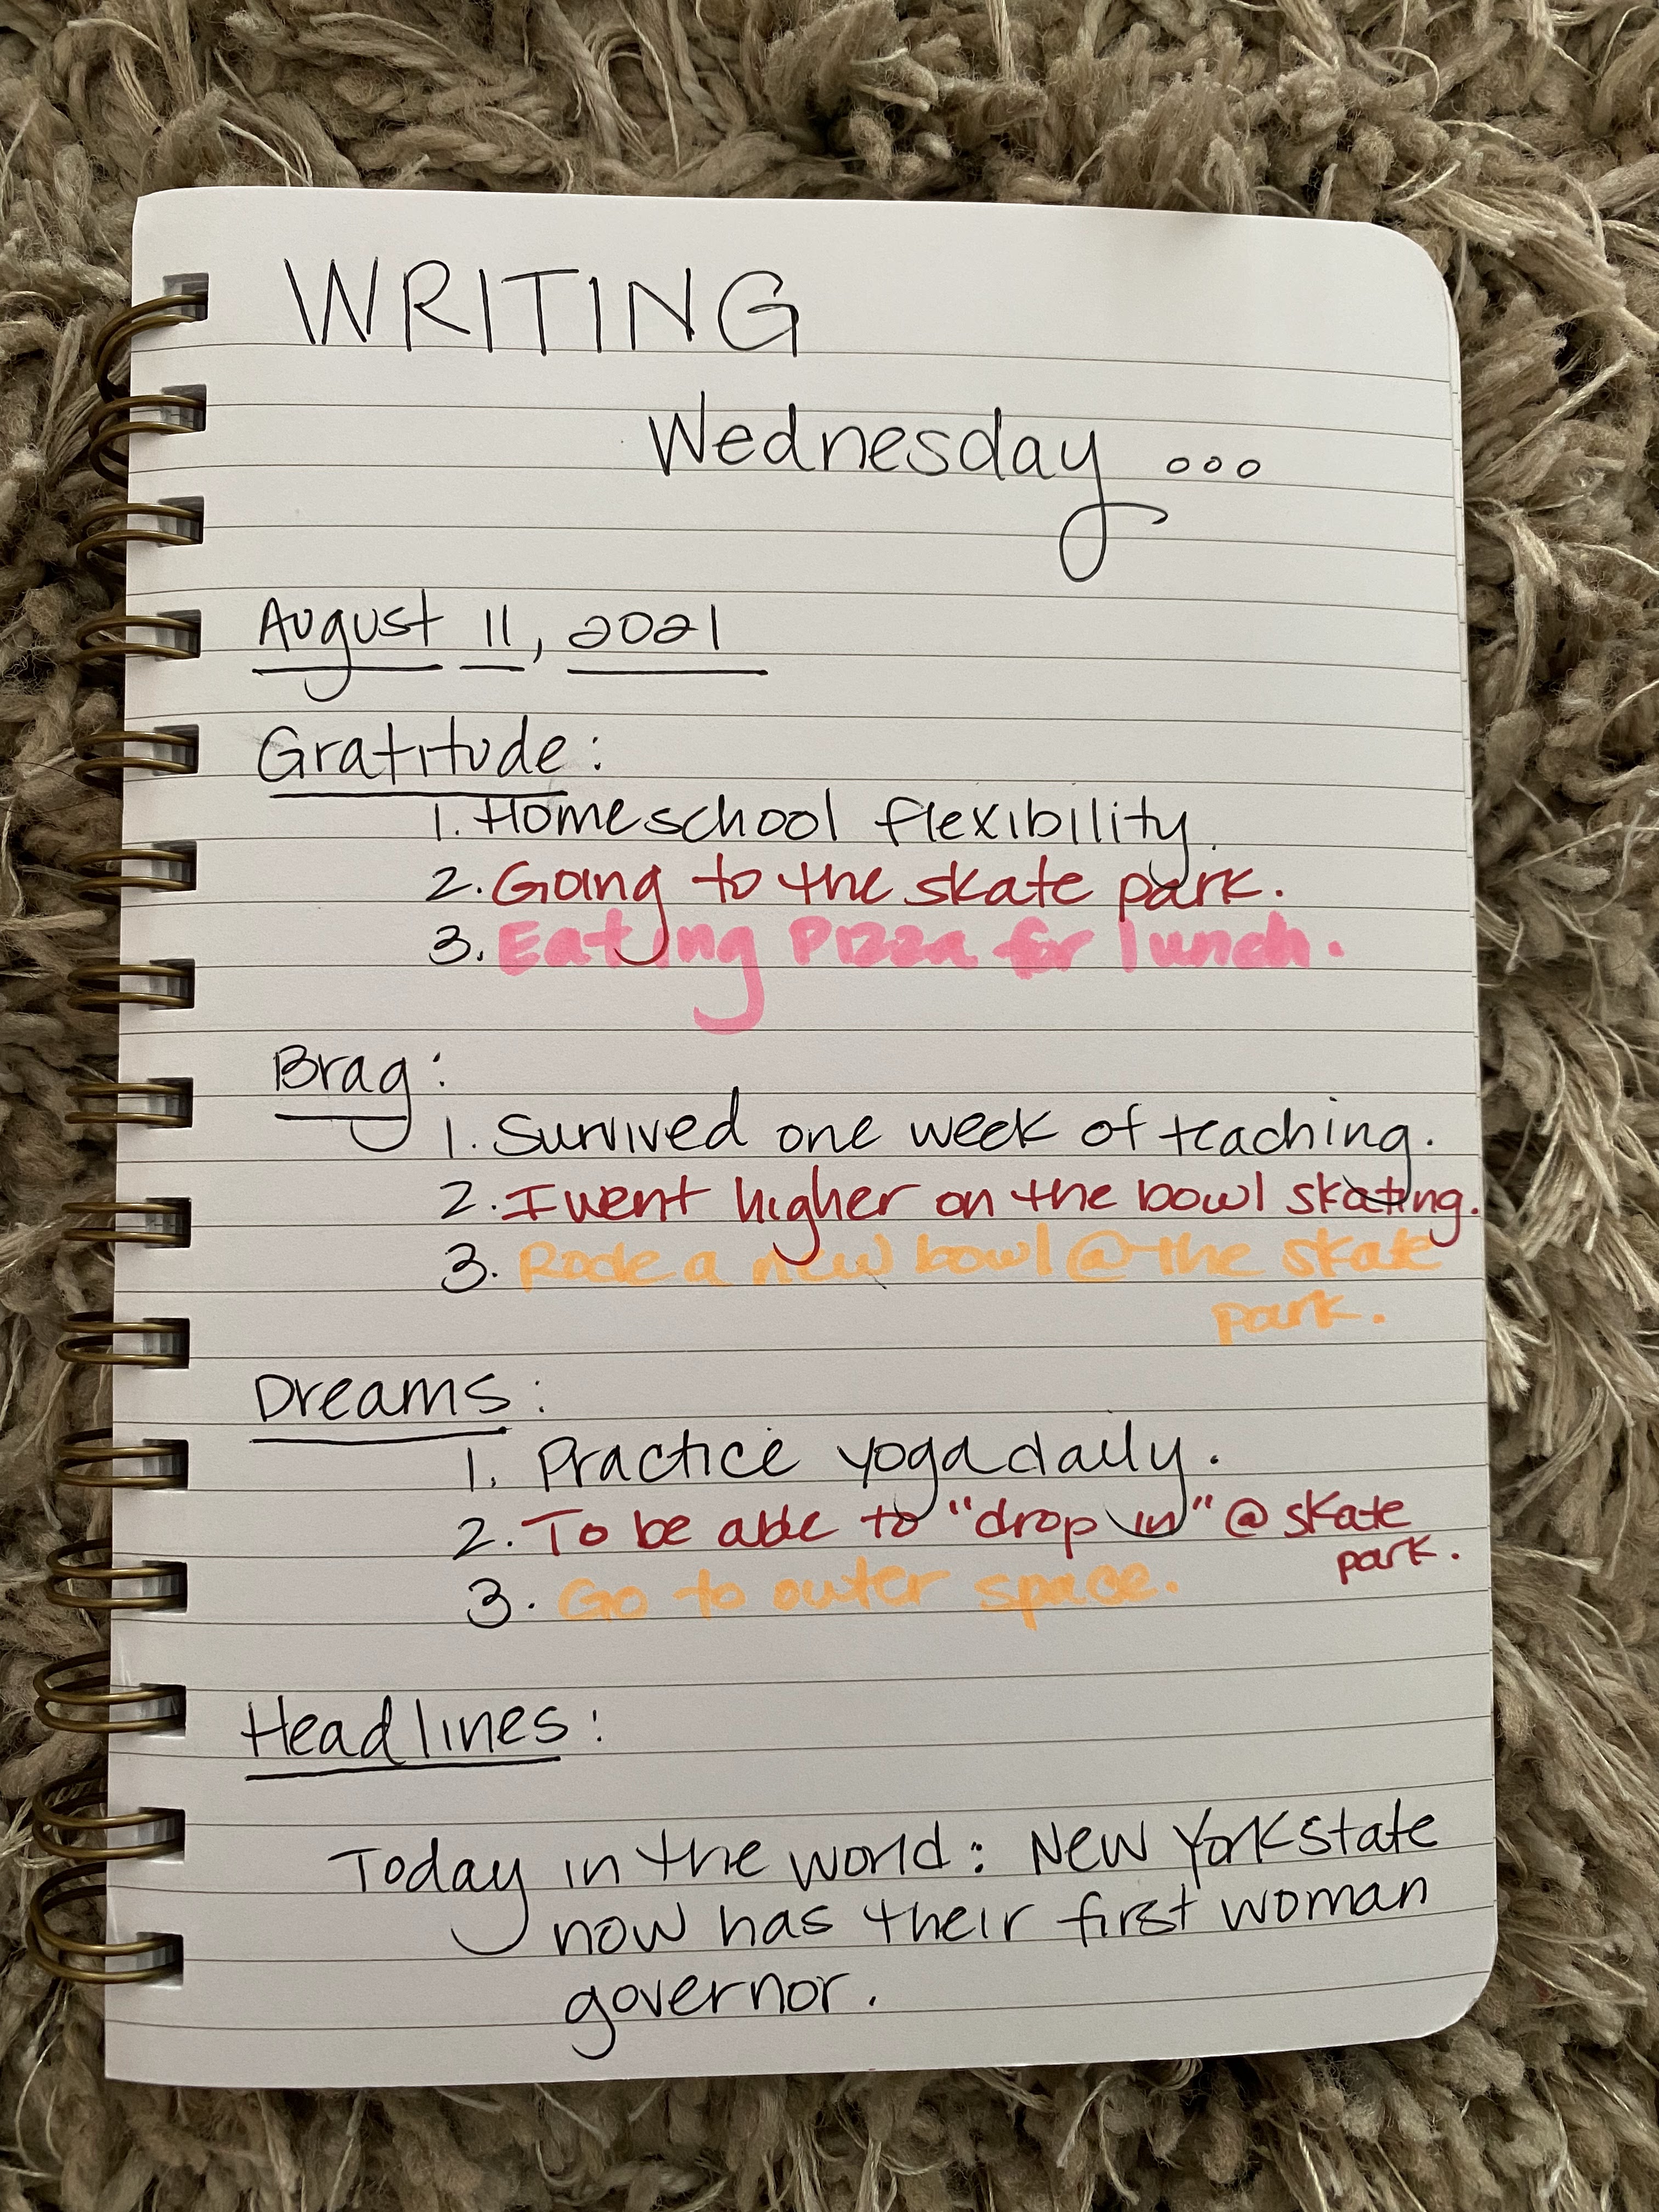 WRITING
Wednesday...
August 11, 2021
Gratitude:
1. Homeschool flexibility.
2. Going to the skate park.
3. Eating Pizza for lunch.
Brag:
1. Survived one week of teaching.
2. I went higher on the bowl skating.
3. Rode a new bowl @ the skate
park.
Dreams:
1. Practice yoga daily.
2. To be able to "drop in" @ skate
park.
3. Go to outer space.
Headlines:
Today in the world: New York state
now has their first woman
governor.